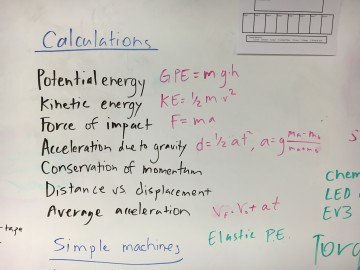 Calculations
Potential energy GPE = mgh
Kinetic energy KE = 1/2 m v²
Force of impact F = ma
Acceleration due to gravity d = 1/2 at², a = g
Conservation of momentum
Distance vs. displacement
Average acceleration + at
Elastic P.E.
Simple machines
-tape
Chem
LED
EV3
Torq